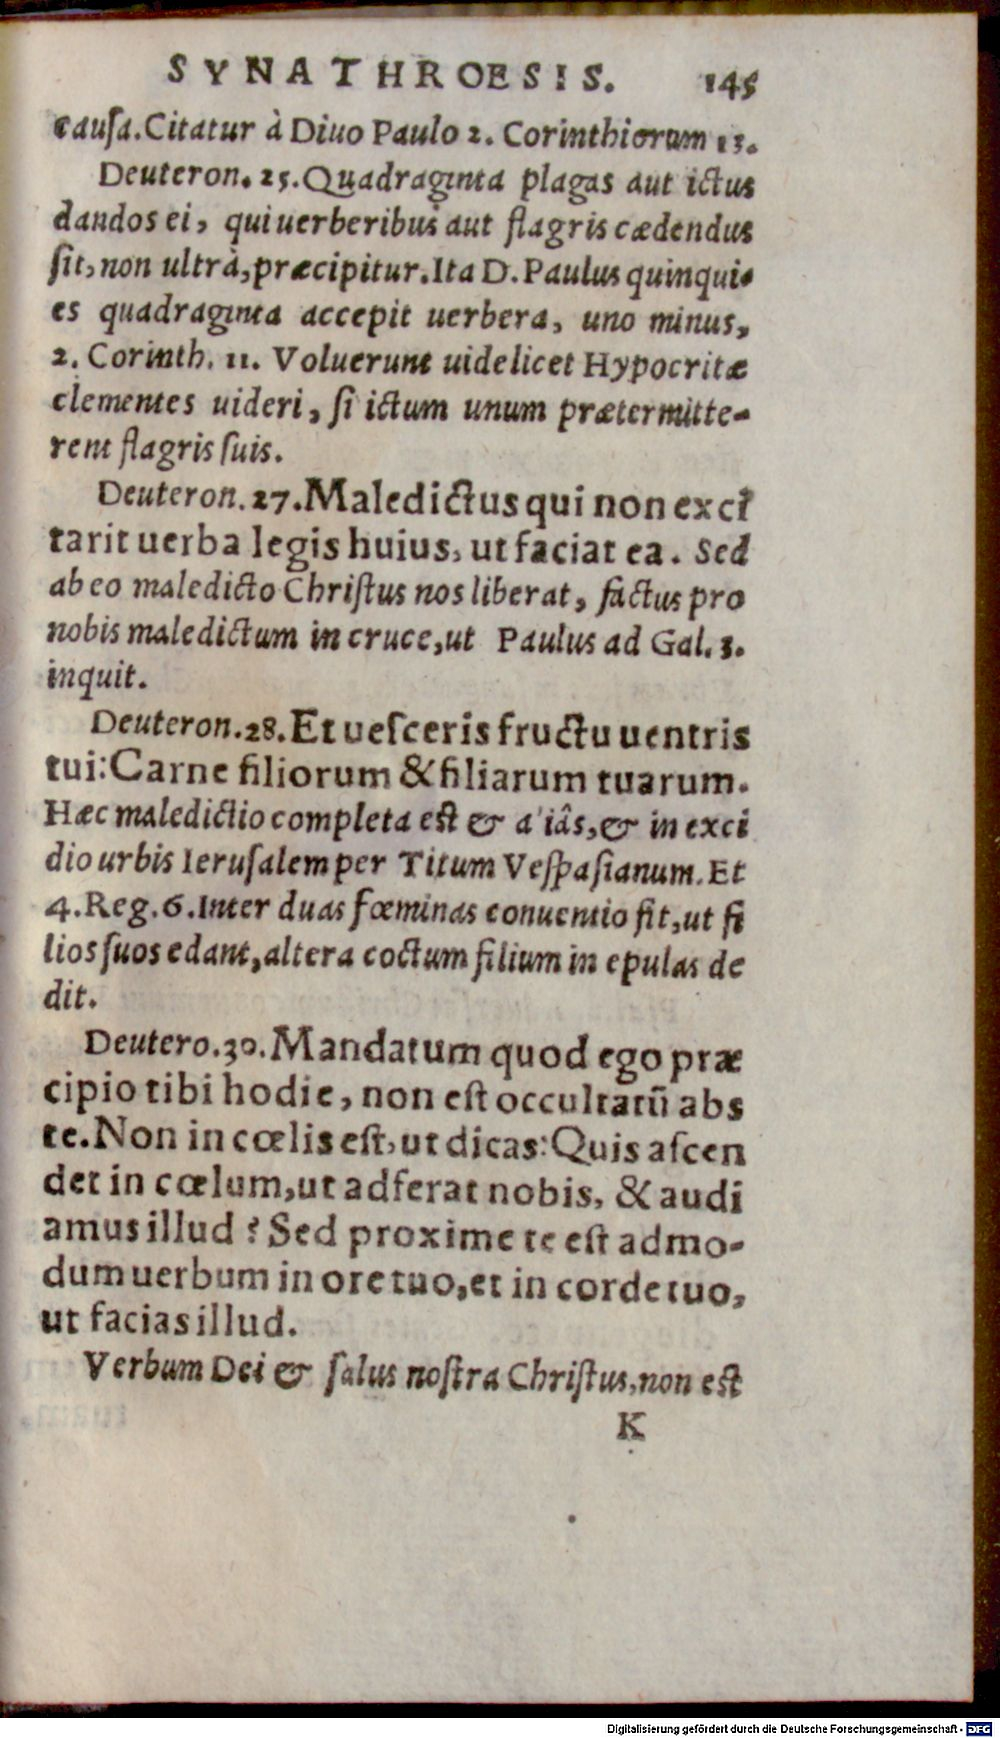 SYNATHROESIS. 145
causa. Citatur à Diuo Paulo 2. Corinthiorum 13.
Deuteron. 25. Quadraginta plagas aut ictus
dandos ei, qui uerberibus aut flagris cædendus
sit, non ultrà, præcipitur. Ita D. Paulus quinqui-
es quadraginta accepit uerbera, uno minus,
2. Corinth. 11. Voluerunt uidelicet Hypocritæ
clementes uideri, si ictum unum prætermitte-
rent flagris suis.
Deuteron. 27. Maledictus qui non exci
tarit uerba legis huius, ut faciat ea. Sed
ab eo maledicto Christus nos liberat, factus pro
nobis maledictum in cruce, ut Paulus ad Gal. 3.
inquit.
Deuteron. 28. Et uesceris fructu uentris
tui: Carne filiorum & filiarum tuarum.
Hæc maledictio completa est & a'iâs, & in exci
dio urbis Ierusalem per Titum Vespasianum. Et
4. Reg. 6. Inter duas fœminas conuentio fit, ut fi
lios suos edant, altera coctum filium in epulas de
dit.
Deutero. 30. Mandatum quod ego præ
cipio tibi hodie, non est occultatū abs
te. Non in cœlis est, ut dicas: Quis ascen
det in cœlum, ut adferat nobis, & audi
amus illud? Sed proxime te est admo-
dum uerbum in ore tuo, et in corde tuo,
ut facias illud.
Verbum Dei & salus nostra Christus, non est
K
Digitalisierung gefördert durch die Deutsche Forschungsgemeinschaft - DFG